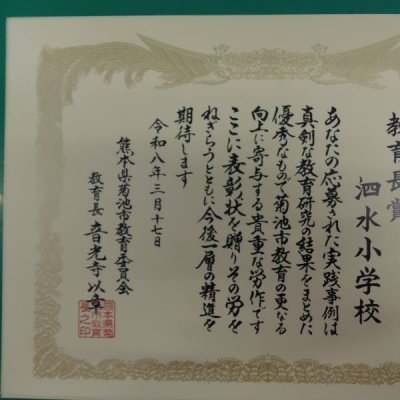 教育長賞
泗水小学校
あなたの応募された実践事例は
真剣な教育研究の結果をまとめた
優秀なもので菊池市教育の更なる
向上に寄与する貴重な労作です
ここに表彰状を贈りその労を
ねぎらうとともに今後一層の精進を
期待します
令和八年三月十七日
熊本県菊池市教育委員会
教育長 音光寺以章
熊本県菊
池市教育
長之印